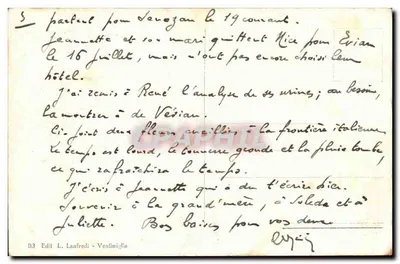 3
partent pour Savozan le 19 courant.
Jeannette et son mari quittent Nice pour Evian
le 16 Juillet, mais n'ont pas encore choisi leur
hôtel.
J'ai remis à René l'analyse de ses urines; au besoin,
la montrer à de Vésian.
Ci-joint deux fleurs cueillies à la frontière italienne
Le temps est lourd, le tonnerre gronde et la pluie tombe,
ce qui rafraîchira le temps.
J'écris à Jeannette qui a dû t'écrire hier.
Souvenir à la grand'mère, à Soleda et à
Juliette. Bos baises pour vos deux
93 Edit L. Lanfredi - Ventimiglia